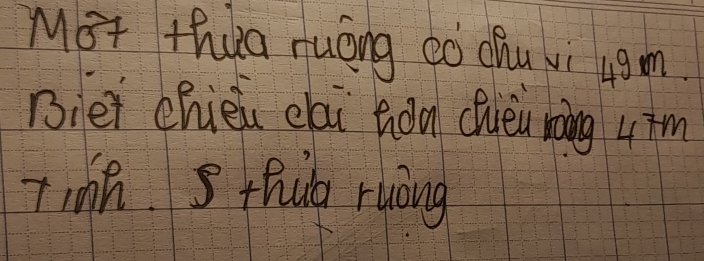 Một thửa ruộng có chu vi 49m.
Biết chiều dài hơn chiều rộng 47m
Tính. S thửa ruộng